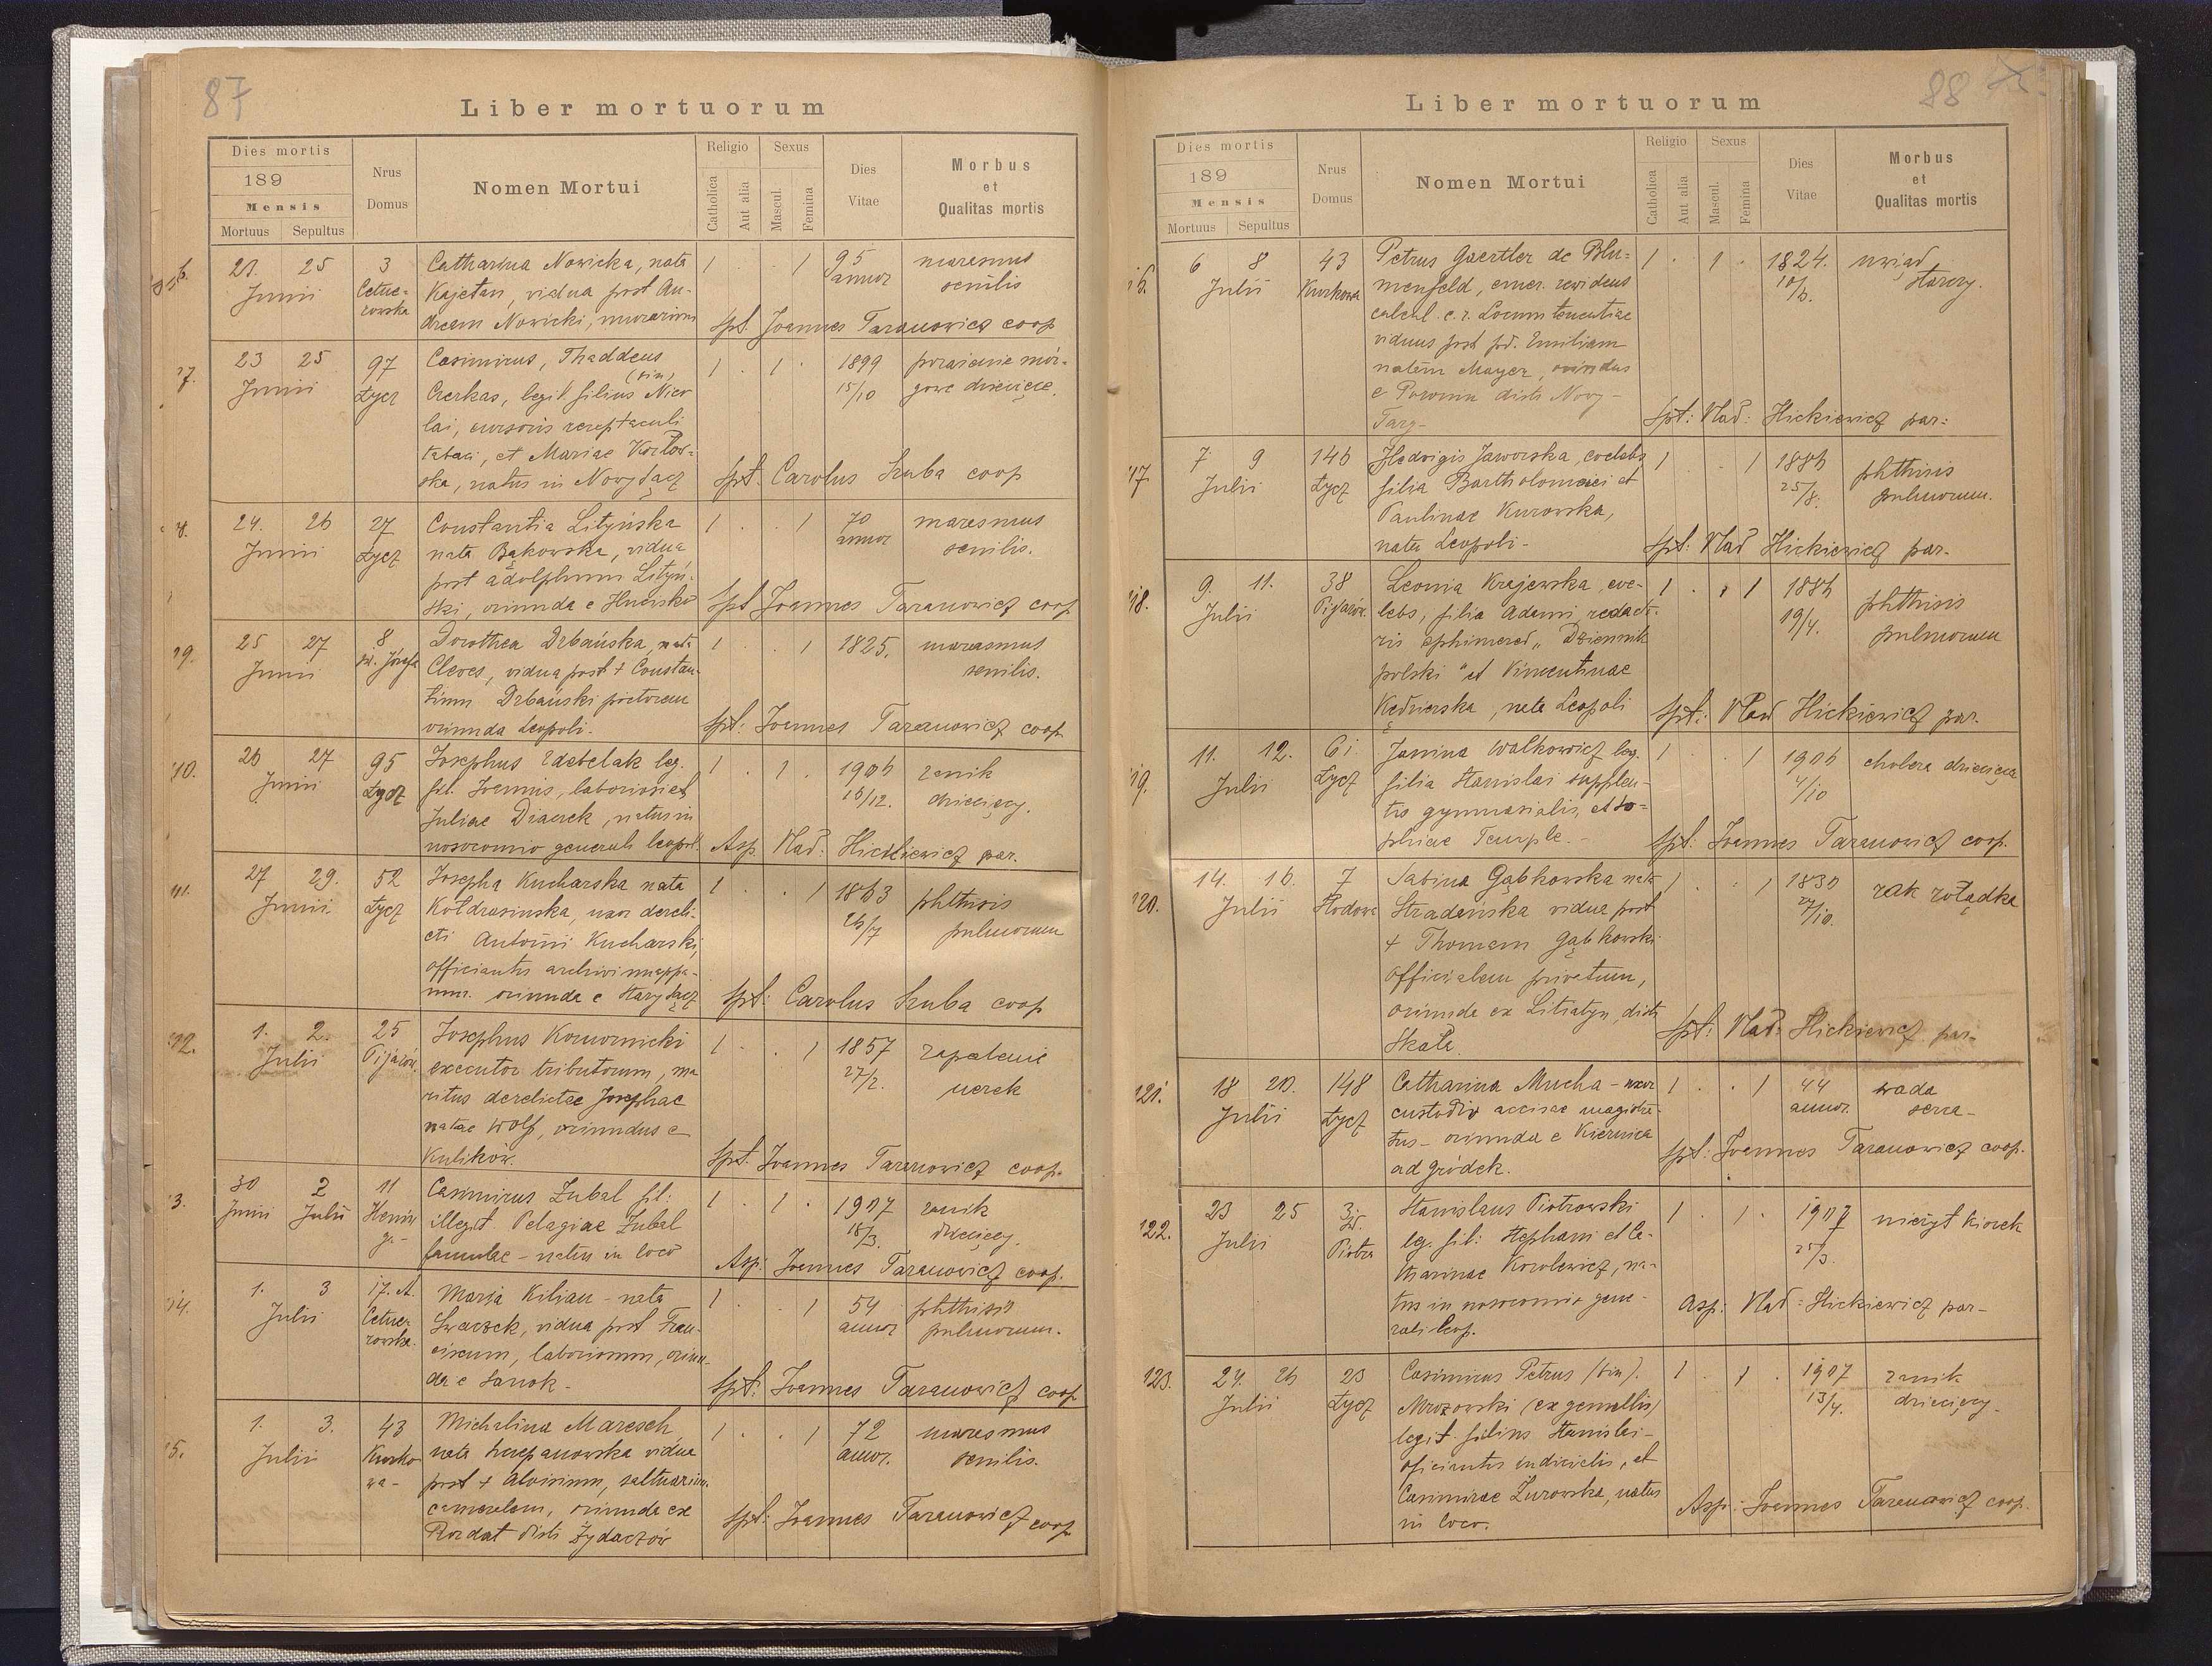 87
Liber mortuorum
Dies mortis
189
Mensis
Mortuus Sepultus
Nrus
Domus
Nomen Mortui
Religio
Catholica
Aut alia
Sexus
Mascul.
Femina
Dies
Vitae
Morbus
et
Qualitas mortis
21. 25 3 Catharina Nowicka, nata 1 . . 1 95 marasmus
Junii Kajetan, vidua post An- annor senilis
dream Nowicki, murarium Spt. Joannes Taranowicz coop
23 25 97 Casimirus, Thaddeus 1 . 1 . 1899
Junii Łycz (bin) 15/10
Czerkas, legit. filius Nico
lai, cursoris receptaculi
tabaci, et Mariae Kozłow-
ska, natus in Nowy Sącz Spt. Carolus Szuba coop
24. 26 27 Constantia Lityńska 1 . . 1 70 marasmus
Junii Łycz nata Bąkowska, vidua annor senilis.
post Adolphum Lityń-
ski, oriunda e Hucisko Spt Joannes Taranowicz coop
25 27 8 Dorothea Drbańska, nata 1 . . 1 1825. marasmus
Junii św. Józefa vidua post + Constan- senilis.
tinum Drbański pictorem
oriunda Leopoli. Spt: Joannes Taranowicz coop
26 27 95 Josephus leg. 1 . 1 . 1906 zanik
Junii Łycz fil. Joannis, laboriosi et 16/12. dziecięcy.
Juliae natus in
nosocomio generali leopol. Asp. Vlad: Hickiewicz par.
27 29. 52 Josepha Kucharska nata 1 . . 1 1863 phthisis
Junii Łycz uxor dereli- 26/7 pulmonum
cti Antonii Kucharski,
officiantis archivi mappa-
rum. oriunda e Stary Sącz Spt: Carolus Szuba coop
1. 2. 25 Josephus Komornicki 1 . . 1 1857 zapalenie
Julii Pijarów executor tributorum, ma 27/2. nerek
ritus derelictae Josephae
natae Wolf, oriundus e
Kulików. Spt. Joannes Taranowicz coop.
30 2 11 Casimirus Zubal fil: 1 . 1 . 1907 zanik
Junii Julii illegit. Pelagiae Zubal 18/3. dziecięcy.
famulae - natus in loco Asp: Joannes Taranowicz coop.
1. 3 17. A. Maria Kilian - nata 1 . . 1 54 phthisis
Julii vidua post Fran- annor pulmonum.
ciscum, laboriosum, oriun-
da e Sanok - Spt: Joannes Taranowicz coop
1. 3. 43 Michalina Maresch 1 . . 1 72 marasmus
Julii Kurko nata Szczepanowska vidua annor. senilis.
wa - post + Aloisium, saltuarium
cameralem, oriunda ex
Rozdał distr Żydaczów Spt: Joannes Taranowicz coop
88
Liber mortuorum
Dies mortis
189
Mensis
Mortuus Sepultus
Nrus
Domus
Nomen Mortui
Religio
Catholica
Aut alia
Sexus
Mascul.
Femina
Dies
Vitae
Morbus
et
Qualitas mortis
6 8 43 Petrus Gaertler de Blu- 1 . 1 . 1824. uwiąd
Julii Kurkowa menfeld, emer. revidens starczy.
calcul. c. r. Locumtenentiae
viduus post pd. Emiliam
natam Mayer, oriundus
e distr Nowy-
Targ- Spt: Vlad: Hickiewicz par:
7 9 146 Hedvigis Jaworska, coelebs 1 . . 1 1886 phthisis
Julii Łycz filia Bartholomaei et 25/8. pulmonum.
Paulinae Kurowska,
nata Leopoli - Spt: Vlad Hickiewicz par-
9. 11. 38 Leonia Krajewska, coe- 1 . . 1 1886 phthisis
Julii Pijarów. lebs, filia Adami, redacto- 19/4. pulmonum
ris ephimered „Dziennik
polski" et Vincentinae
nata Leopoli Spt: Vlad Hickiewicz par.
11. 12. 61 Janina Walkowicz leg. 1 . . 1 1906 cholera dziecięca
Julii Łycz filia Stanislai supplen- 4/10
tis gymnasialis, et So-
phiae Temple. - Spt: Joannes Taranowicz coop.
120. 14. 16. 7 Sabina Gąbkowska nata 1 . . 1 1830 rak żołądka
Julii Słodowa Stradańska vidua post 27/10.
+ Thomam Gąbkowski
officialem privatum,
oriunda ex Litiatyn, distr
Skała. Spt: Vlad: Hickiewicz par-
121. 18 20. 148 Catharina Mucha - uxor 1 . . 1 44 wada
Julii Łycz custodis accisae magistra- annor. serca -
tus - oriunda e Kiernica
ad Gródek. Spt: Joannes Taranowicz coop.
122. 23 25 3. Stanislaus Piotrowski 1 . 1 . 1907 nieżyt kiszek
Julii św. Piotra leg. fil: Stephani et Ca- 25/3.
tharinae Korolewicz, na-
tus in nosocomio gene-
rali leop. Asp: Vlad: Hickiewicz par-
123. 24. 26 23 Casimirus Petrus (bin). 1 . 1 . 1907 zanik
Julii Łycz Mrozowski (ex gemellis) 13/4. dziecięcy.
legit. filius Stanislai -
oficiantis iudicialis, et
Casimirae Żurowska, natus
in loco. Asp.: Joannes Taranowicz coop.